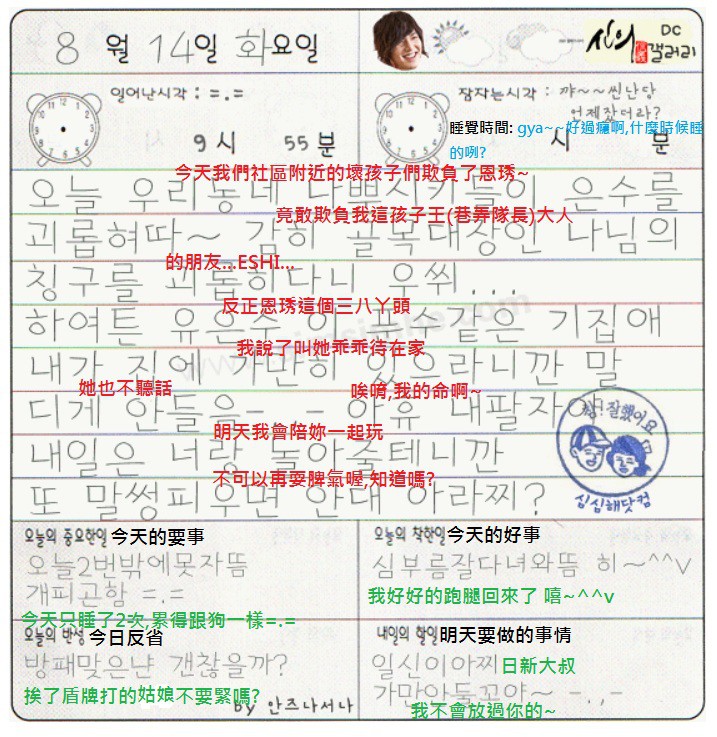 8 월 14일 화요일
신의 DC 갤러리
일어난시각 : =.=
9 시 55 분
잠자는시각 : 꺄~~씐난당
언제잤더라?
睡覺時間: gya~~好過癮啊,什麼時候睡
的咧?
시 분
今天我們社區附近的壞孩子們欺負了恩琇~
오늘 우리동네 나뿐시키들이 은수를
竟敢欺負我這孩子王(巷弄隊長)大人
괴롭혀따~ 감히 골목대장인 나님의
的朋友...ESHI...
칭구를 괴롭히다니 우쒸...
反正恩琇這個三八丫頭
하여튼 유은수 이 푼수같은 기집애
我說了叫她乖乖待在家
내가 집에 가만히 있으라니깐 말
她也不聽話 唉唷,我的命啊~
디게 안들음- - 아유 내팔자야!
참! 잘했어요
明天我會陪妳一起玩
내일은 너랑 놀아줄테니깐
不可以再耍脾氣喔,知道嗎?
또 말썽피우면 안대 아라찌?
심심해닷컴
오늘의 중요한일 今天的要事
오늘2번밖에못자뜸
개피곤함 =.=
今天只睡了2次,累得跟狗一樣=.=
오늘의 착한일 今天的好事
심부름잘다녀와뜸 히~^^V
我好好的跑腿回來了 嘻~^^v
오늘의 반성 今日反省
방패맞은냔 갠찮을까?
挨了盾牌打的姑娘不要緊嗎?
by 안즈나서나
내일의 할일 明天要做的事情
일신이아찌 日新大叔
가만안둘꼬야~ -.,-
我不會放過你的~